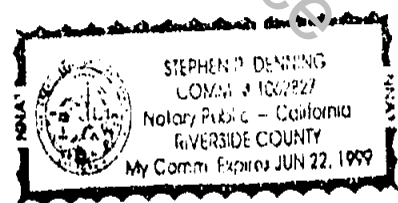 STEPHEN P. DENNING
COMM. # 1062827
Notary Public – California
RIVERSIDE COUNTY
My Comm. Expires JUN 22, 1999
NNA1
NNA1